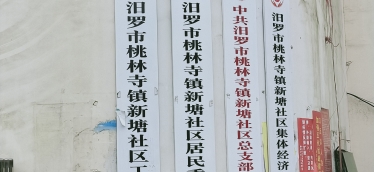 汨罗市桃林寺镇新塘社区工
汨罗市桃林寺镇新塘社区居民委
中共汨罗市桃林寺镇新塘社区总支部
汨罗市桃林寺镇新塘社区集体经济